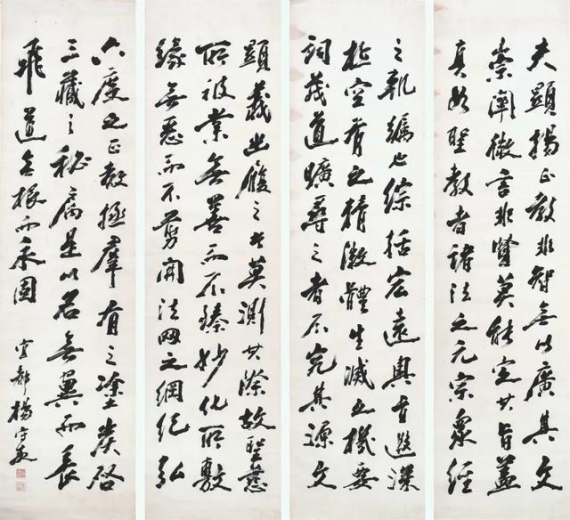 夫顯揚正教非智無以廣其文
崇闡微言非賢莫能定其旨蓋
真如聖教者諸法之元宗衆經
之軌躅也綜括宏遠奧旨遐深
極空有之精微體生滅之機要
詞茂道曠尋之者不究其源文
顯義幽履之者莫測其際故聖慈
所被業無善而不臻妙化所敷
緣無惡而不翦開法網之綱紀弘
六度之正教拯羣有之塗炭啓
三藏之秘扃是以名無翼而長
飛道無根而永固 宜都楊守敬